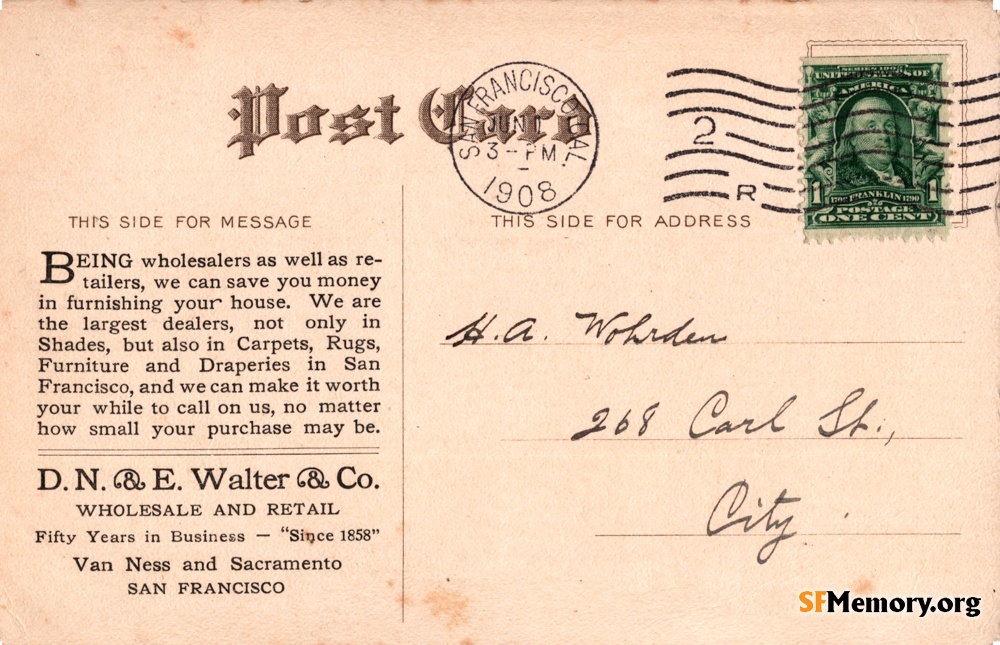 Post Card
SAN FRANCISCO, CAL.
JUN
3 - PM
1908
2
R
SERIES 1902
UNITED STATES OF
AMERICA
1 1
1706 FRANKLIN 1790
POSTAGE
ONE CENT
THIS SIDE FOR MESSAGE
BEING wholesalers as well as re-
tailers, we can save you money
in furnishing your house. We are
the largest dealers, not only in
Shades, but also in Carpets, Rugs,
Furniture and Draperies in San
Francisco, and we can make it worth
your while to call on us, no matter
how small your purchase may be.
D. N. & E. Walter & Co.
WHOLESALE AND RETAIL
Fifty Years in Business — "Since 1858"
Van Ness and Sacramento
SAN FRANCISCO
THIS SIDE FOR ADDRESS
H. A. Wohrden
268 Carl St.,
City
SFMemory.org